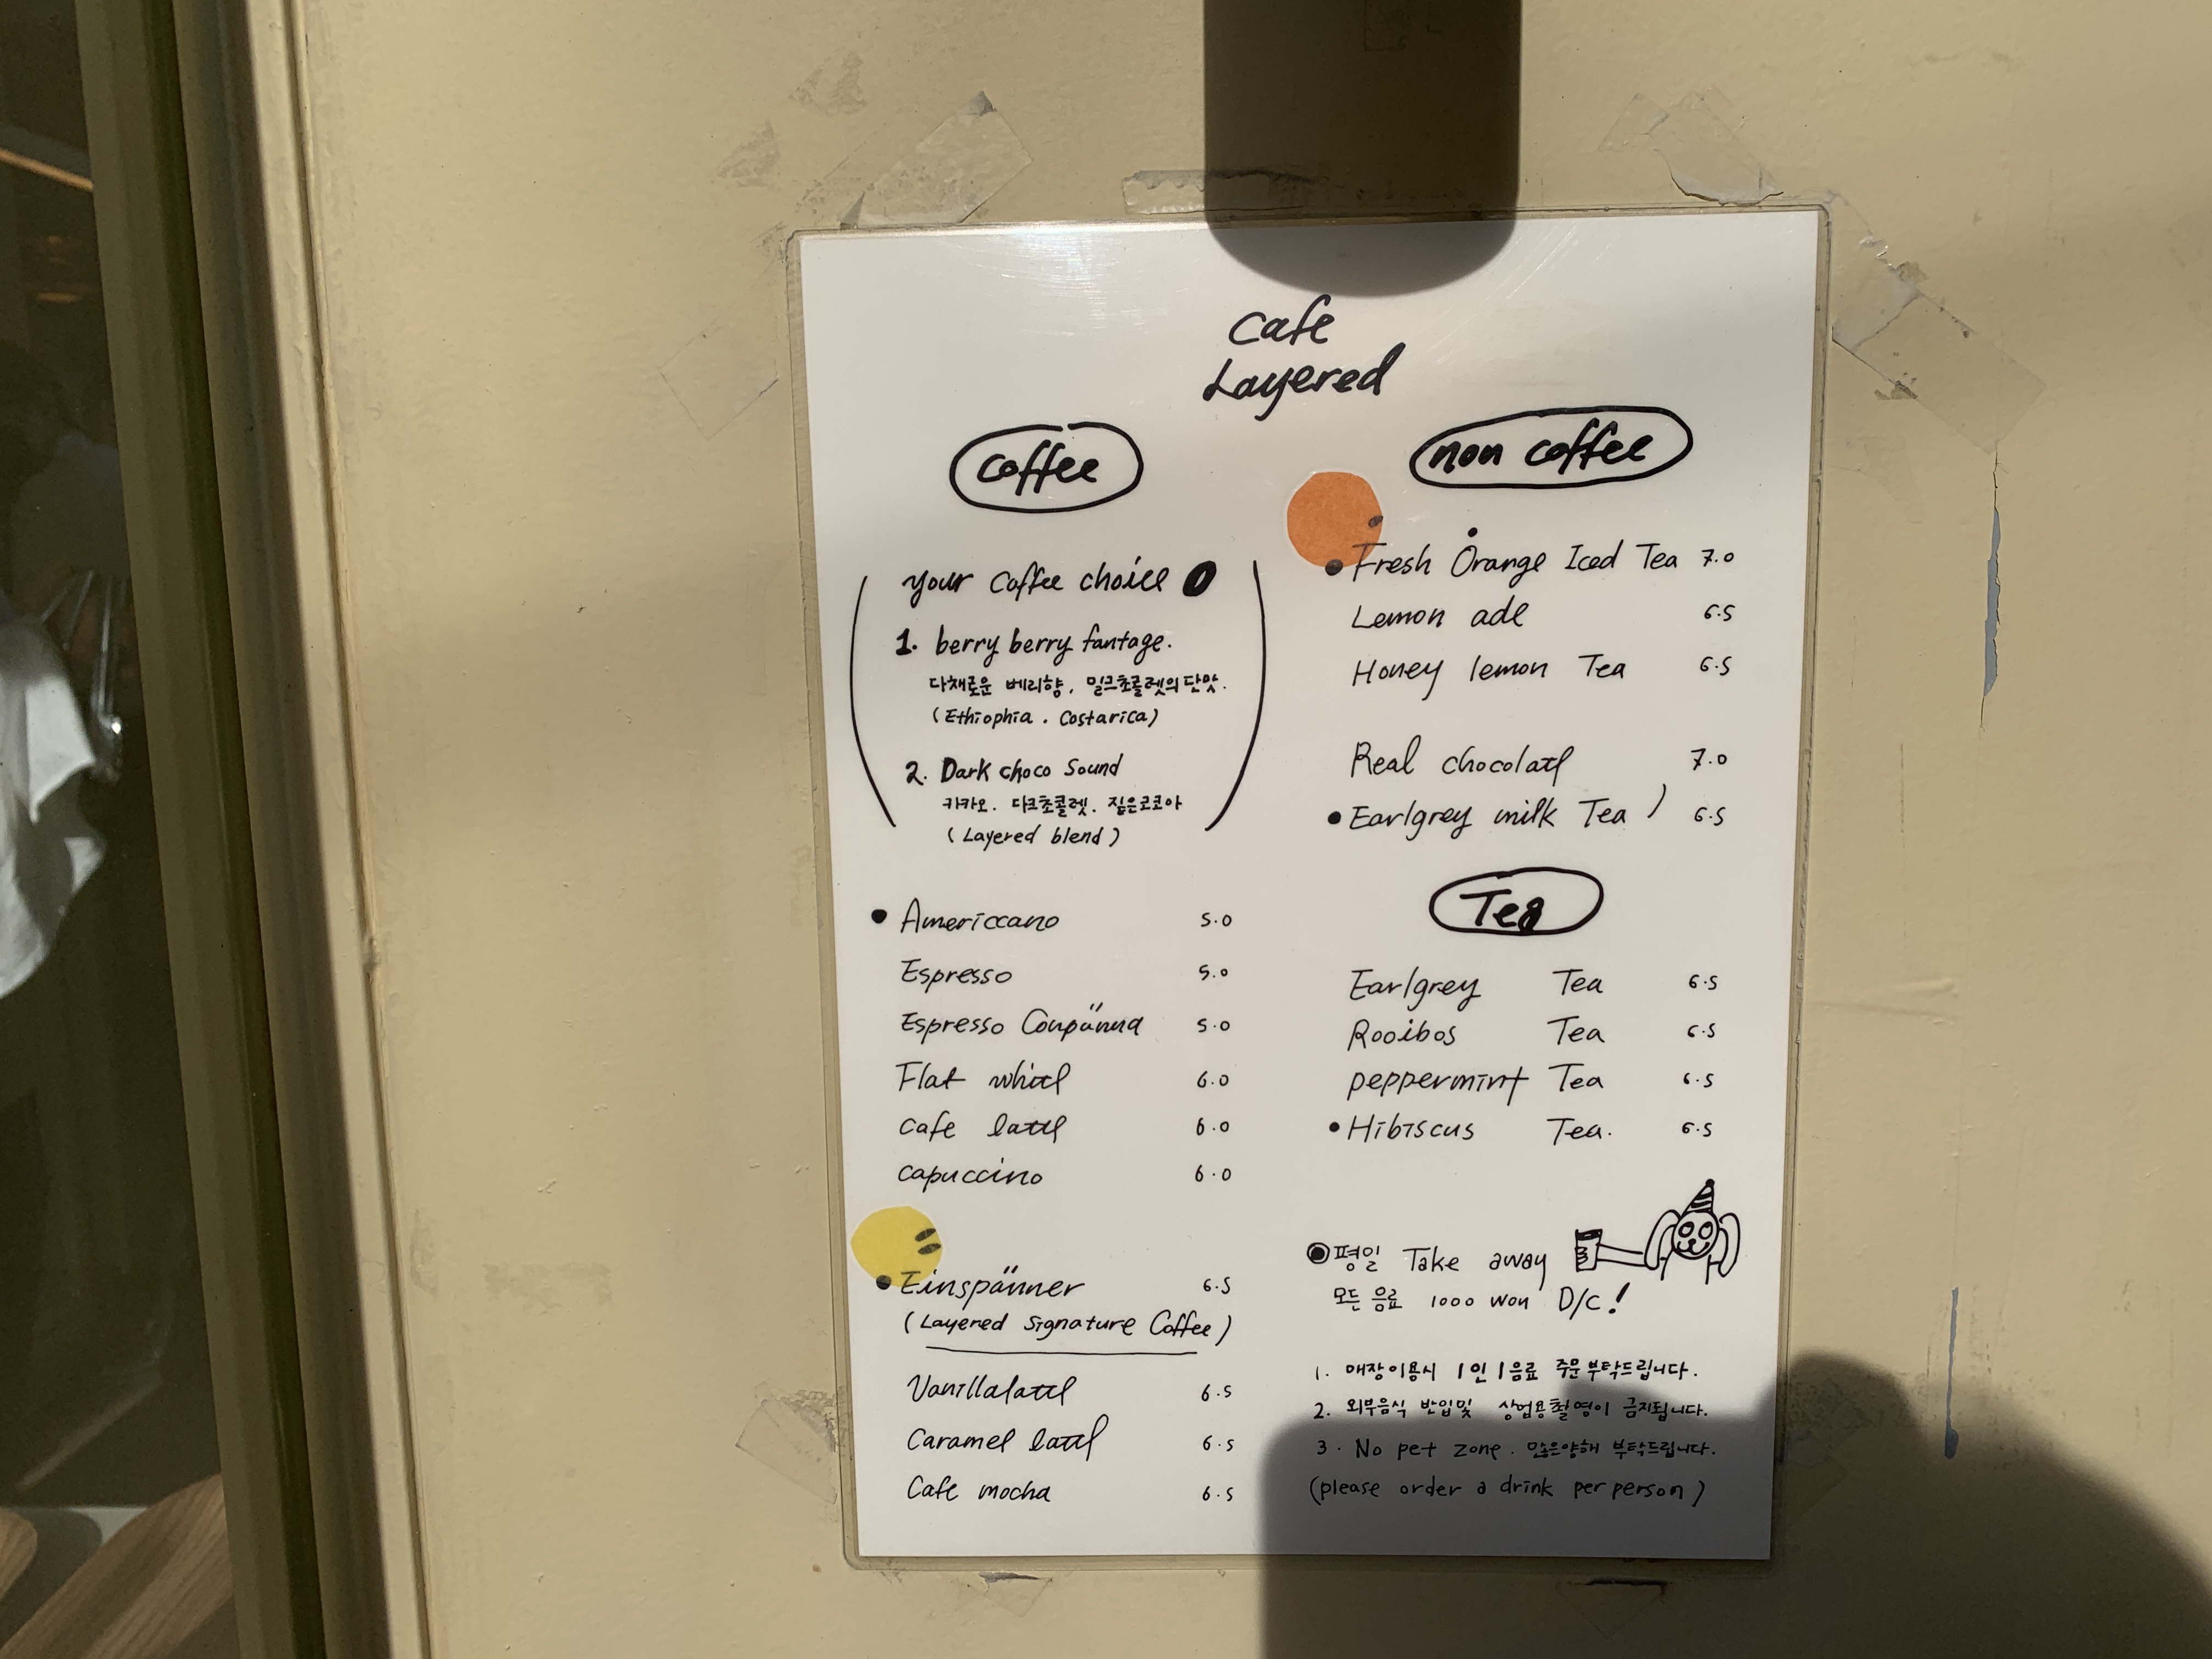 Cafe
Layered
Coffee
your coffee choice
1. berry berry fantage.
다채로운 베리향, 밀크초콜렛의 단맛.
(Ethiophia . Costarica)
2. Dark choco Sound
카카오. 다크초콜렛. 짙은코코아
(Layered blend)
Americcano 5.0
Espresso 5.0
Espresso Conpänna 5.0
Flat white 6.0
cafe latte 6.0
capuccino 6.0
Einspänner 6.5
(Layered Signature Coffee)
Vanillalatte 6.5
Caramel latte 6.5
Cafe mocha 6.5
non coffee
Fresh Orange Iced Tea 7.0
Lemon ade 6.5
Honey lemon Tea 6.5
Real chocolate 7.0
Earlgrey milk Tea ) 6.5
Tea
Earlgrey Tea 6.5
Rooibos Tea 6.5
peppermint Tea 6.5
Hibiscus Tea. 6.5
평일 Take away
모든 음료 1000 won D/C!
1. 매장이용시 1인 1음료 주문부탁드립니다.
2. 외부음식 반입및 상업용촬영이 금지됩니다.
3. No pet zone. 많은양해 부탁드립니다.
(please order a drink per person)